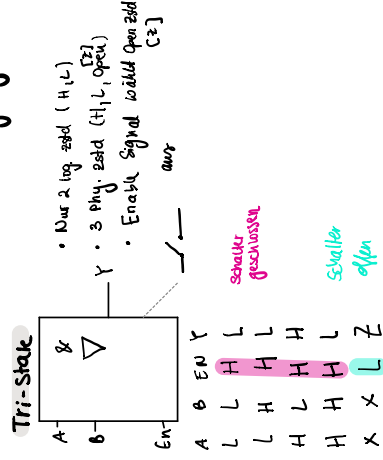 Tri-State
A
B
En
&
▽
Y
• Nur 2 log. zstd (H,L)
• 3 Phy. zstd (H, L, Open)
[Z]
• Enable Signal wählt Open zstd
[Z]
aus
A B EN Y
L L H L
L H H L
H L H H
H H H L
X X L Z
Schalter
geschlossen
Schalter
offen